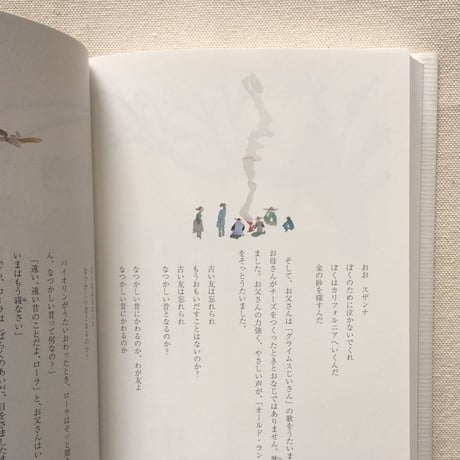 おお スザンナ
ぼくのために泣かないでくれ
ぼくはカリフォルニアへいくんだ
金の砂を探すんだ
そして、お父さんは「グライムスじいさん」の歌をうたいま
お母さんがチーズをつくったときとおなじではありません。歌
ました。お父さんの力強く、やさしい声が、「オールド・ラン
をそっとうたいました。
古い友は忘れられ
もうおもいだすことはないのか?
古い友は忘れられ
なつかしい昔となるのか?
なつかしい昔にかわるのか、わが友よ
なつかしい昔にかわるのか
バイオリンがうたいおわったとき、ローラはそっと聞
「なつかしい昔って何なの?」
「遠い、遠い昔のことだよ、ローラ」と、お父さんはい
いまはもう寝なさい」
ローラは、しばらくのあいだ、目をさましたま